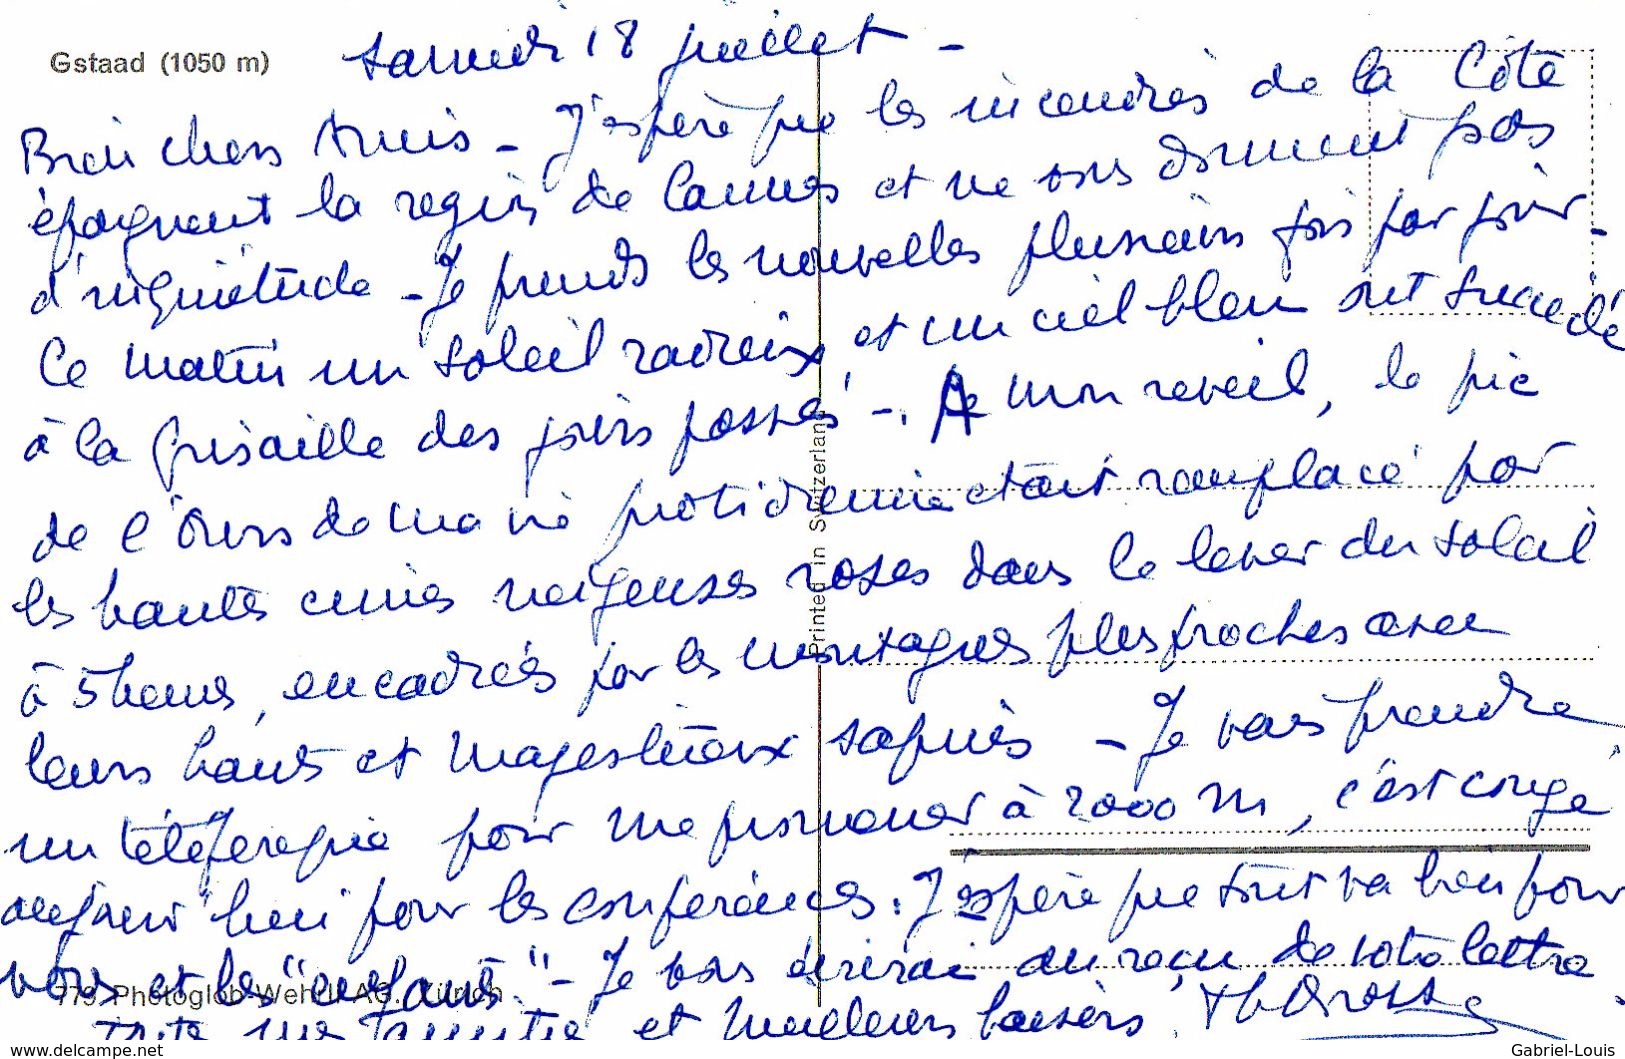 Gstaad (1050 m)
samedi 18 juillet -
Bien chers Amis - J'espère que les incendies de la Côte
épargnent la region de Cannes et ne vous donnent pas
d'inquiétude - Je prends les nouvelles plusieurs fois par jour -
Ce matin un soleil radieux, et un ciel bleu ont succédé
à la grisaille des jours passés -. A mon reveil, le pic
de l'Ours de ma vie quotidienne etait remplacé par
les hautes cimes neigeuses roses dans le lever du soleil
à 5 heures, encadrées par les montagnes plus proches avec
leurs hauts et magestueux sapins - Je vais prendre
un téléferique pour me promener à 2000 m, c'est congé
aujourd'hui pour les conférences. J'espère que tout va bien pour
vous et les "enfants" - Je vous écrirai au reçu de votre lettre
Toute mon amitié et meilleurs baisers.
Printed in Switzerland
779 Photoglob-Wehrli AG. Zürich
www.delcampe.net
Gabriel-Louis